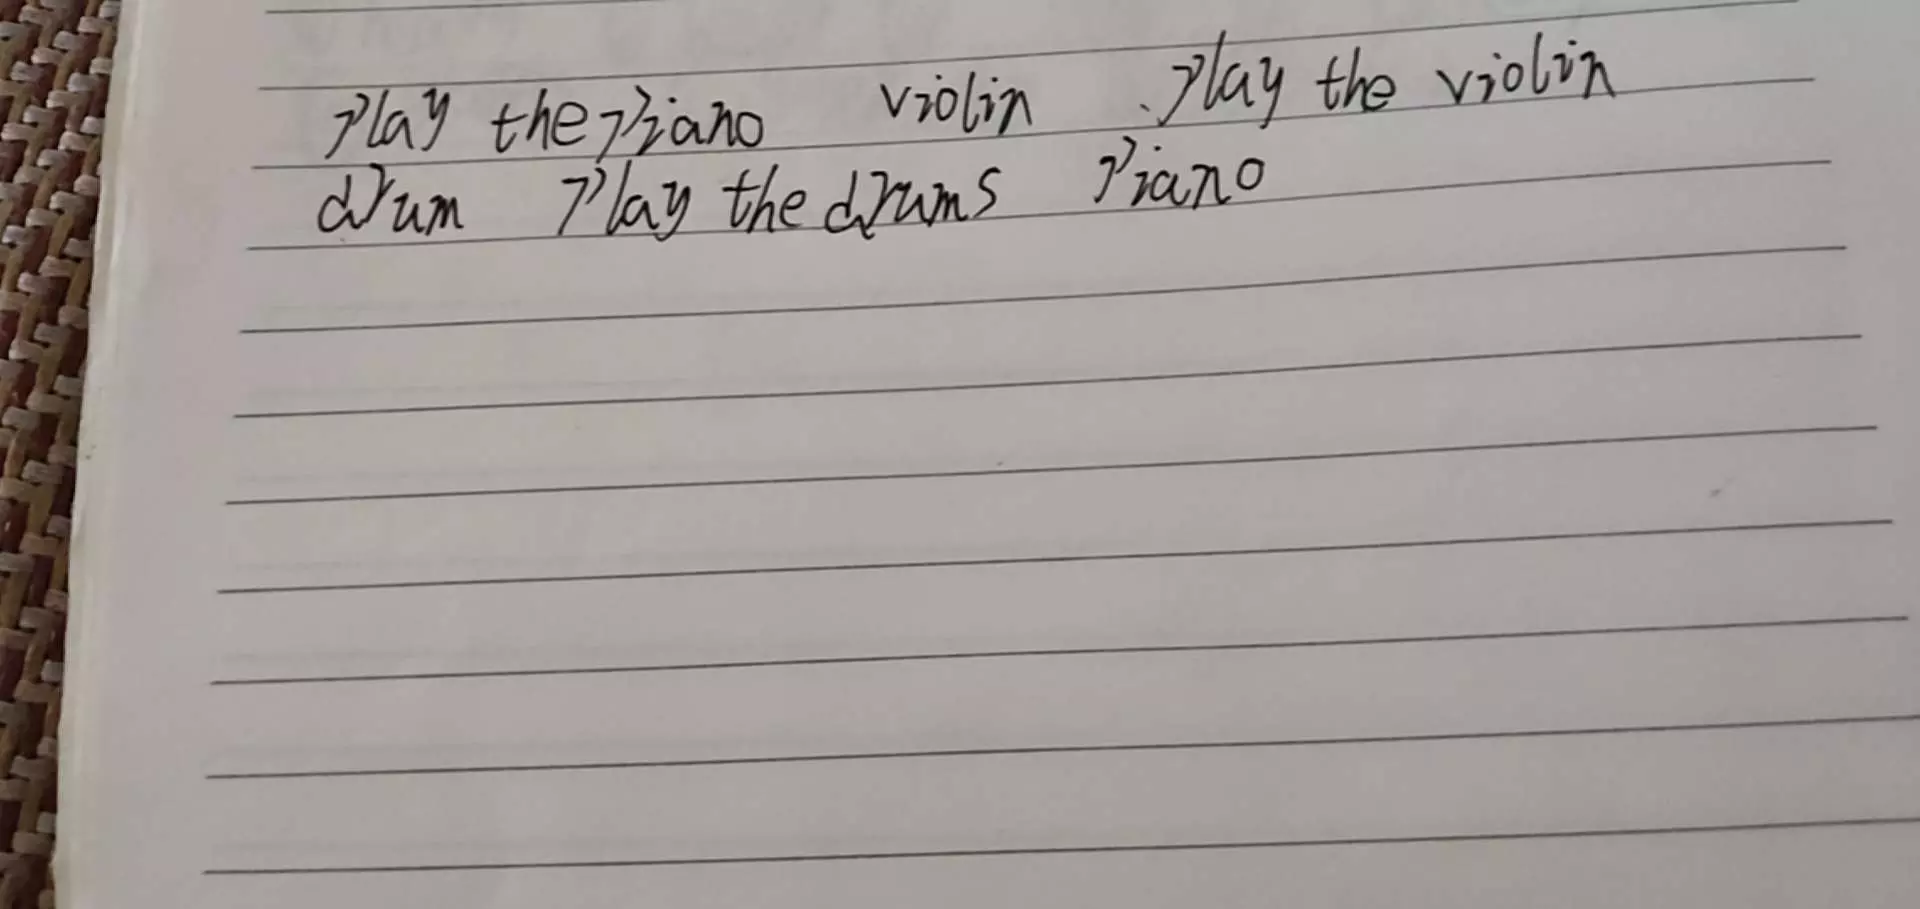 play the piano violin play the violin
drum play the drums piano